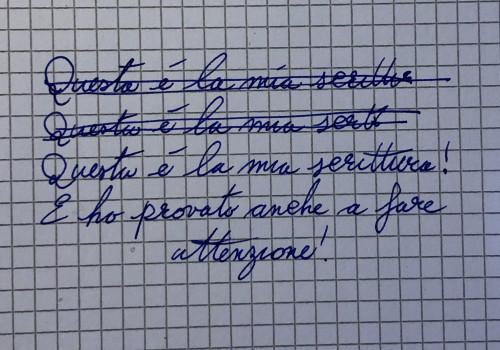 Questa é la mia scrittu
Questa é la mia scritt
Questa é la mia scrittura!
E ho provato anche a fare
attenzione!